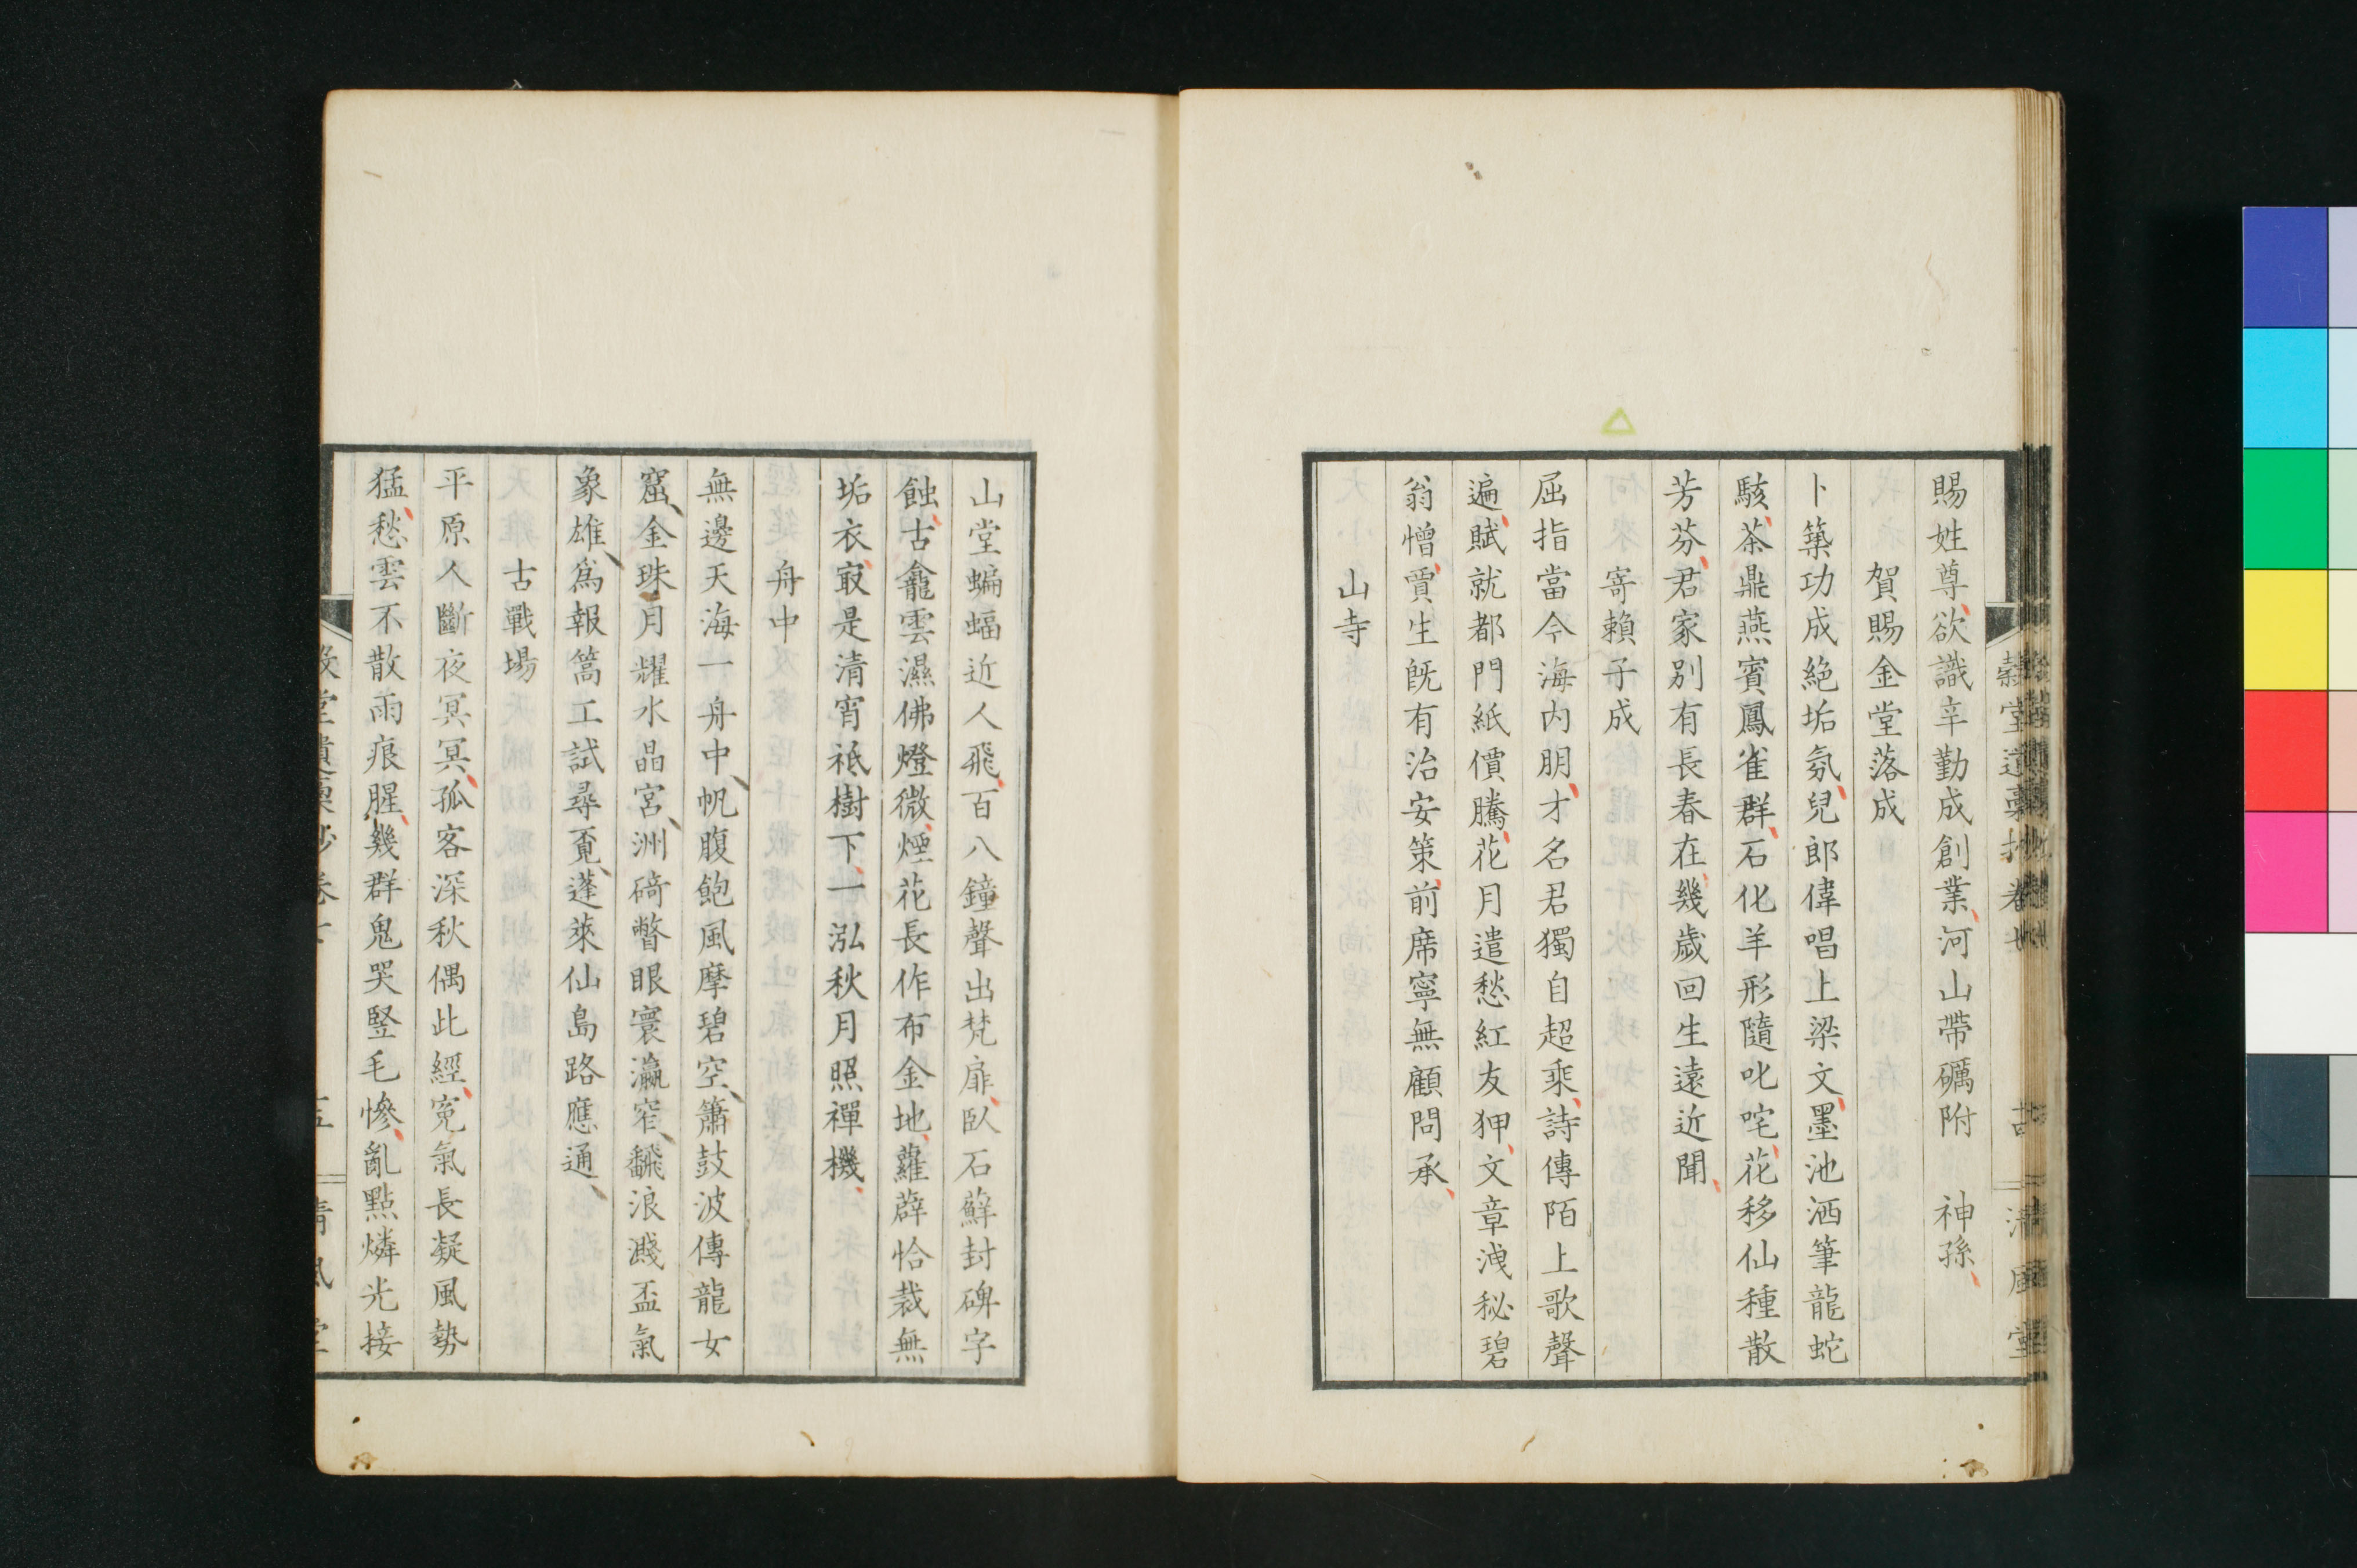 賜姓尊欲識辛勤成創業河山帶礪附　神孫
賀賜金堂落成
卜築功成絶垢氛兒郎偉唱上梁文墨池洒筆龍蛇
駭茶鼎燕賓鳳雀群石化羊形隨叱咤花移仙種散
芳芬君家別有長春在幾歲回生遠近聞
寄賴子成
屈指當今海内朋才名君獨自超乘詩傳陌上歌聲
遍賦就都門紙價騰花月遣愁紅友狎文章洩秘碧
翁憎賈生旣有治安策前席寧無顧問承
山寺
山堂蝙蝠近人飛百八鐘聲出梵扉臥石蘚封碑字
蝕古龕雲濕佛燈微煙花長作布金地蘿薜恰裁無
垢衣㝡是清宵祗樹下一泓秋月照禪機
舟中
無邊天海一舟中帆腹飽風摩碧空簫鼓波傳龍女
窟金珠月耀水晶宮洲碕瞥眼寰瀛窄飜浪濺盃氣
象雄爲報篙工試尋覔蓬萊仙島路應通
古戰場
平原人斷夜冥冥孤客深秋偶此經寃氣長凝風勢
猛愁雲不散雨痕腥幾群鬼哭竪毛慘亂點燐光接